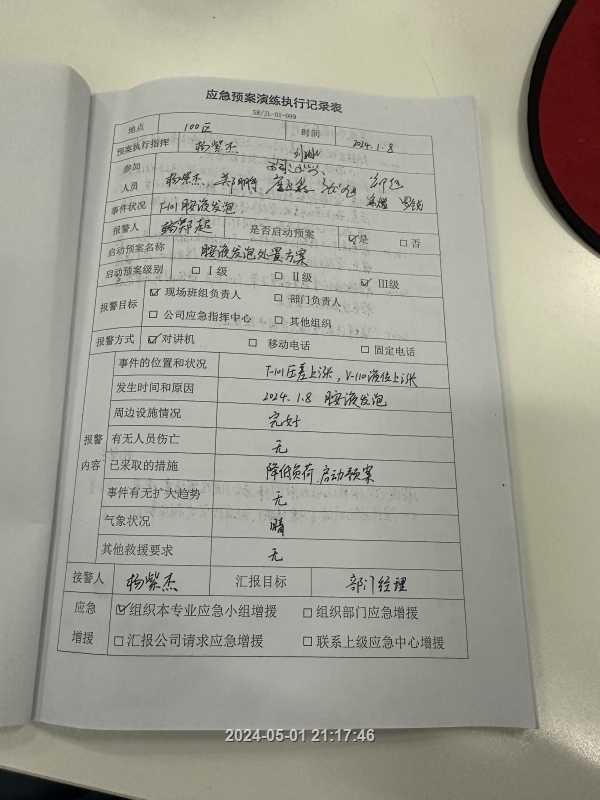 应急预案演练执行记录表
SR/JL-01-099
地点 100区 时间 2024.1.8
预案执行指挥 杨紫杰
参加
人员 杨紫杰
事件状况 T-101胺液发泡
报警人 是否启动预案 ☑是 □否
启动预案名称 胺液发泡处置方案
启动预案级别 □Ⅰ级 □Ⅱ级 ☑Ⅲ级
报警目标 ☑现场班组负责人 □部门负责人
□公司应急指挥中心 □其他组织
报警方式 ☑对讲机 □移动电话 □固定电话
报警
内容
事件的位置和状况 T-101压差上涨，V-110液位上涨
发生时间和原因 2024.1.8 胺液发泡
周边设施情况 完好
有无人员伤亡 无
已采取的措施 降低负荷.启动预案
事件有无扩大趋势 无
气象状况 晴
其他救援要求 无
接警人 杨紫杰 汇报目标 部门经理
应急
增援
☑组织本专业应急小组增援 □组织部门应急增援
□汇报公司请求应急增援 □联系上级应急中心增援
2024-05-01 21:17:46